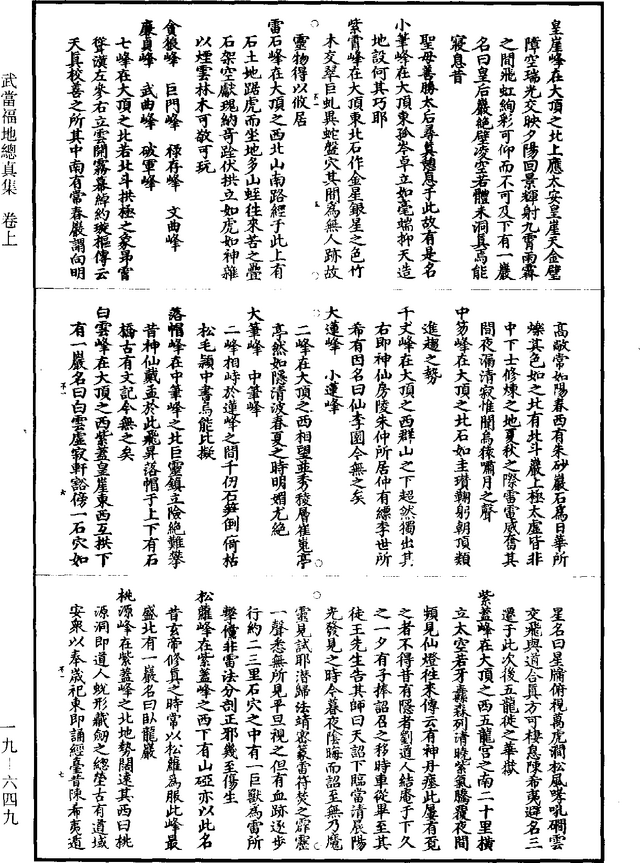 武當福地總真集 卷上
一九—六四九
皇崖峰在大頂之北上應太安皇崖天金壁
障空瑞光交映夕陽回景輝射九霄雨霖
之間飛虹絢彩可仰而不可及下有一巖
名曰皇后巖絕壁凌空若體未洞真焉能
寢息昔
聖母善勝太后尋真憩息于此故有是名
小筆峰在大頂東孤岑卓立如毫端抑天造
地設何其巧耶
紫霄峰在大頂東北石作金星銀星之色竹
木交翠巨虬異蛇盤穴其間為無人跡故
靈物得以攸居
雷石峰在大頂之西北山南路經于此上有
石土地踞虎而坐地多山蛭往來苦之疊
石架空獻瑰納奇跧伏拱立如虎如神雜
以煙雲林木可敬可玩
貪狼峰 巨門峰 祿存峰 文曲峰
廉貞峰 武曲峰 破軍峰
七峰在大頂之北若北斗拱極之象昂霄
聳漢左參右立雲開霧幕綽約璇樞傳云
天真校善之所其中南有常春巖謂向明
高敞常如陽春西有朱砂巖石為日華所
爍其色如之北有北斗巖上極太虛皆非
中下士修煉之地夏秋之際雷電威奮其
間夜漏清寂惟聞烏猿嘯月之聲
中笏峰在大頂之北石如圭瓚鞠躬朝頂類
進趨之勢
千丈峰在大頂之西群山之下超然獨出其
右即神仙房陵朱仲所居仲有縹李世所
希有因名曰仙李園今無之矣
大蓮峰 小蓮峰
二峰在大頂之西相望並秀稜層崔嵬亭
亭然如隱清波春夏之時明媚尤絕
大筆峰 中筆峰
二峰相峙於蓮峰之間千仞石筍倒
松毛穎中書焉能比擬
落帽峰在中筆峰之北巨靈鎮立險絕難攀
昔神仙戴孟於此飛昇落帽于上下有石
橋古有文記今無之矣
白雲峰在大頂之西紫蓋皇崖東西互拱下
有一巖名曰白雲虛寂軒豁傍一石穴如
星名曰星牖俯視萬虎澗松風哮吼磵雲
交飛與道合真方可棲息陳希夷避名三
遷于此次後五龍徙之華嶽
紫蓋峰在大頂之西五龍宮之南二十里橫
立太空若牙纛森列清時紫氣騰覆夜間
頻見仙燈往來傳云有神丹瘞此屢有覓
之者不得昔有隱者劉道人結庵于下久
之一夕有子捧詔召之移時車從畢至其
徒王先生告其師曰天詔下臨當清晨陽
光發見之時今暮夜陰晦而詔至無乃魔
靈見試耶潛歸法靖密篆雷符焚之霹靂
一聲悉無所見平旦視之但有血跡逐步
行約二三里石穴之中有一巨獸為雷所
擊僮非雷法分剖正邪幾至傷生
松蘿峰在紫蓋峰之西下有山磴亦以此名
昔玄帝修真之時常以松蘿為服此峰最
盛北有一巖名曰臥龍巖
桃源峰在紫蓋峰之北地勢闊遠其西曰桃
源洞即道人蛻形藏劒之塚塋古有道域
安眾以奉歲祀東即誦經臺昔陳希夷遁